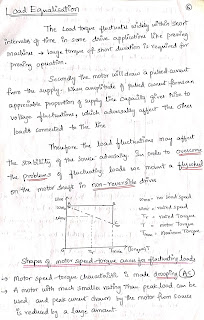 Load Equalisation
The Load torque fluctuates widely within short
intervals of time in some drive applications like pressing
machines → large torque of short duration is required for
pressing operation.
Secondly the motor will draw a pulsed current
from the supply. When amplitude of pulsed current forms an
appreciable proportion of supply line capacity gives rise to
voltage fluctuations, which adversely affect the other
loads connected to the line
Therefore the load fluctuations may affect
the stability of the source adversely. In order to overcome
the problem of fluctuating loads we mount a flywheel
on the motor shaft in non-reversible drives
no load speed
rated speed
Tr → rated Torque
T → motor Torque
Tmax → Maximum Torque
Tr
Tmax
T(Torque)
Shapes of motor speed-torque curves for fluctuating loads
→ Motor speed-torque characteristic is made drooping (AC)
→ A motor with much smaller rating than peak load can be
used and peak current drawn by the motor from source
is reduced by a large amount